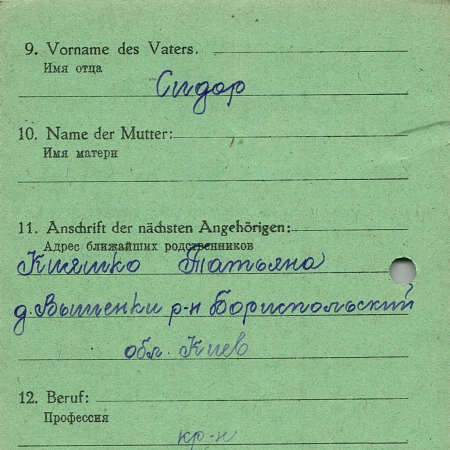 9. Vorname des Vaters.
Имя отца
Сидор
10. Name der Mutter:
Имя матери
11. Anschrift der nächsten Angehörigen:
Адрес ближайших родственников
Кияшко Татьяна
д. Вышенки р-н Бориспольский
обл. Киев
12. Beruf:
Профессия
кр-н